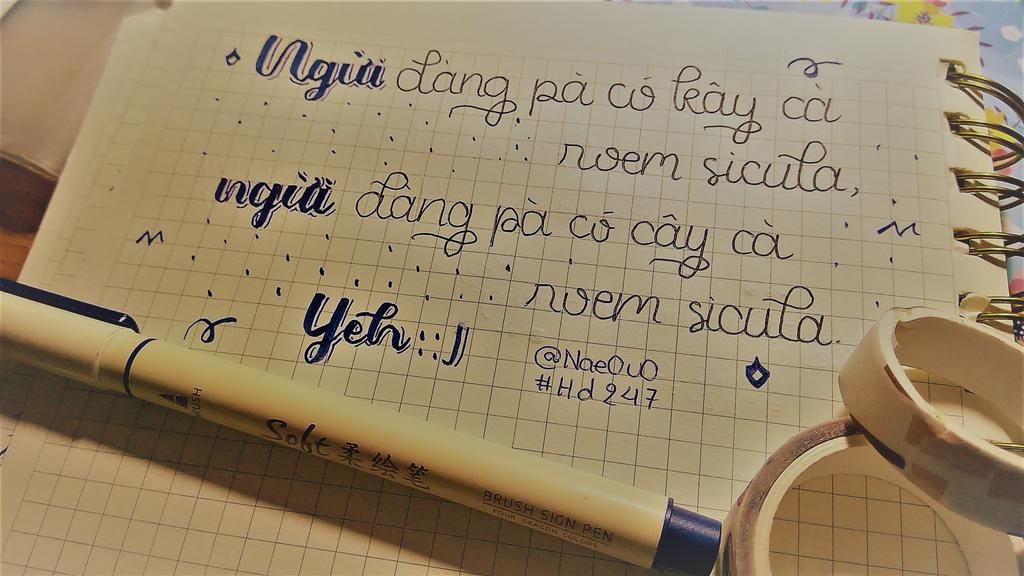 Ngừi dàng pà có kây cà
rwem sicula,
ngừi dàng pà có cây cà
rwem sicula.
Yeh ::))
@NaeOuO
#Hd247
BRUSH
Soft 柔绘笔
BRUSH SIGN PEN
FOUR SEASON COLORS